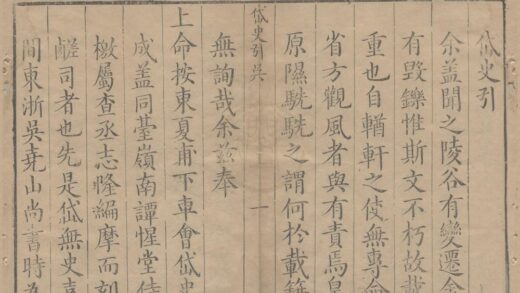 岱史引
余盖聞之陵谷有變遷金
有毀鑠惟斯文不朽故載
重也自輶軒之使無專命
省方觀風者與有責焉皇
原隰駪駪之謂何於載籍
岱史引吳
一
無詢哉余兹奉
上命按東夏甫下車會岱史
成盖同臺嶺南譚惺堂侍
檄屬查丞志隆編摩而刻
鹺司者也先是岱無史嘉
間東浙吳堯山尚書時為